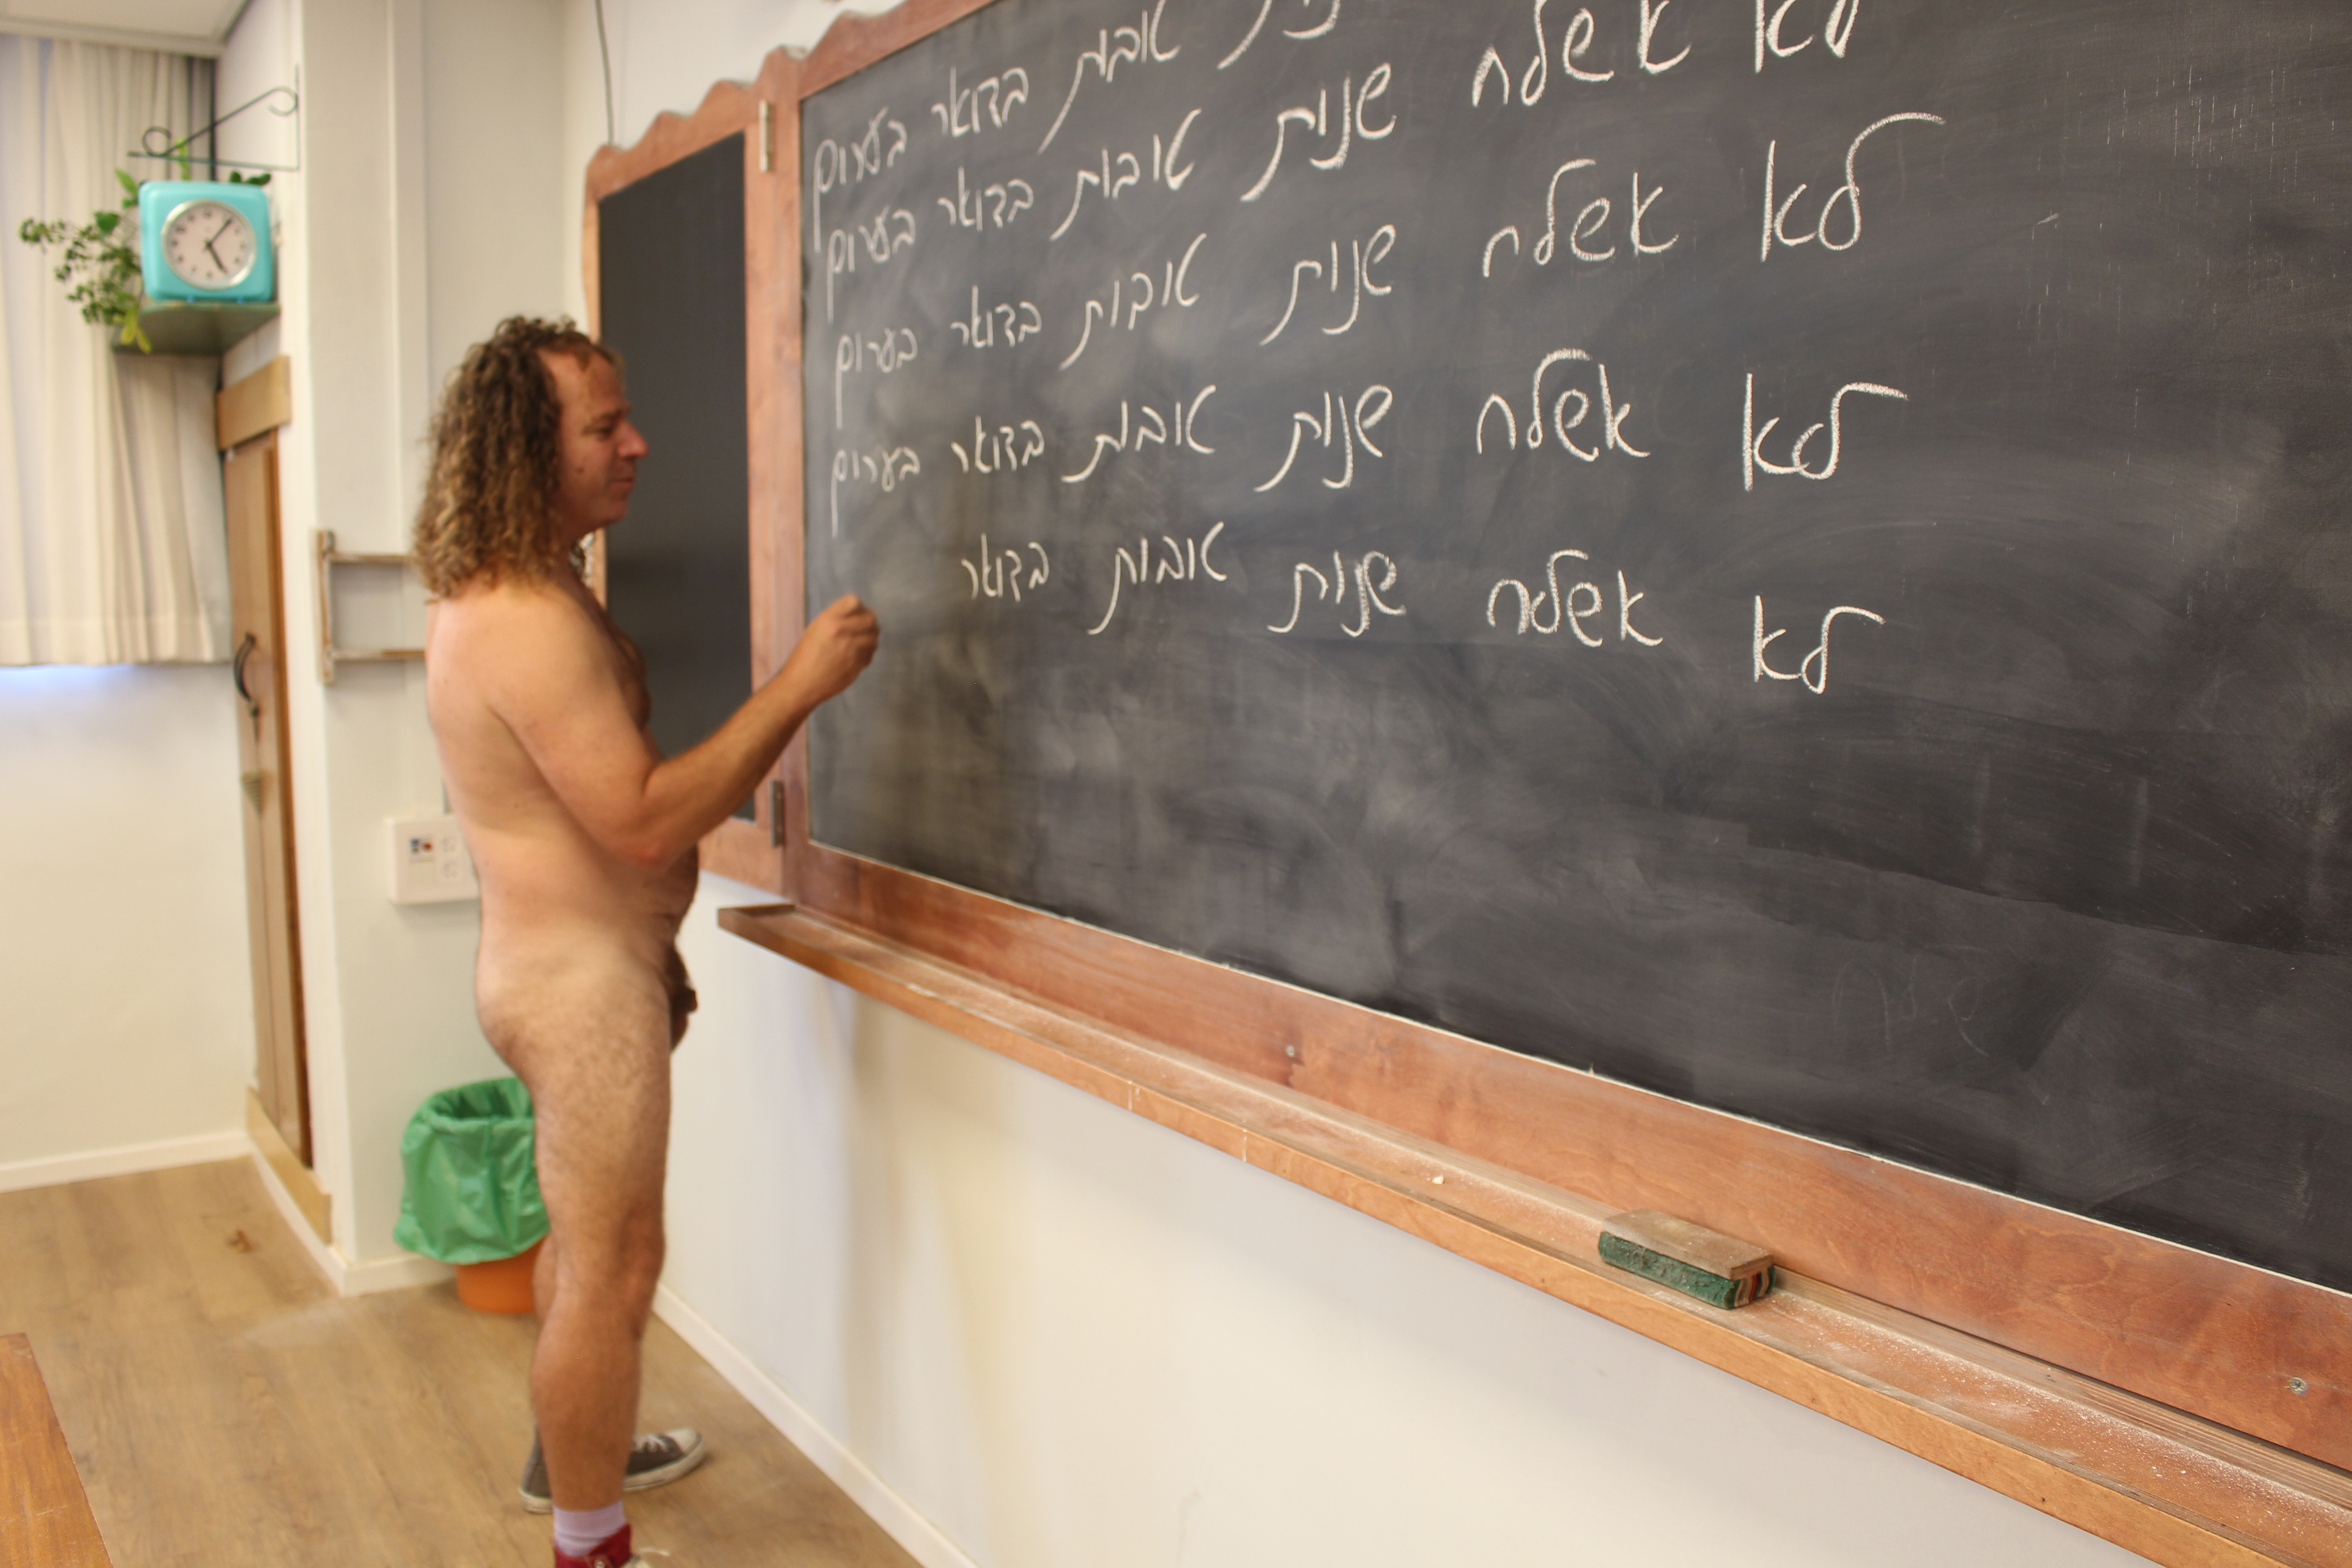 שנות טובות בדואר בערום
לא אשלח שנות טובות בדואר בערום
לא אשלח שנות טובות בדואר בערום
לא אשלח שנות טובות בדואר בערום
לא אשלח שנות טובות בדואר